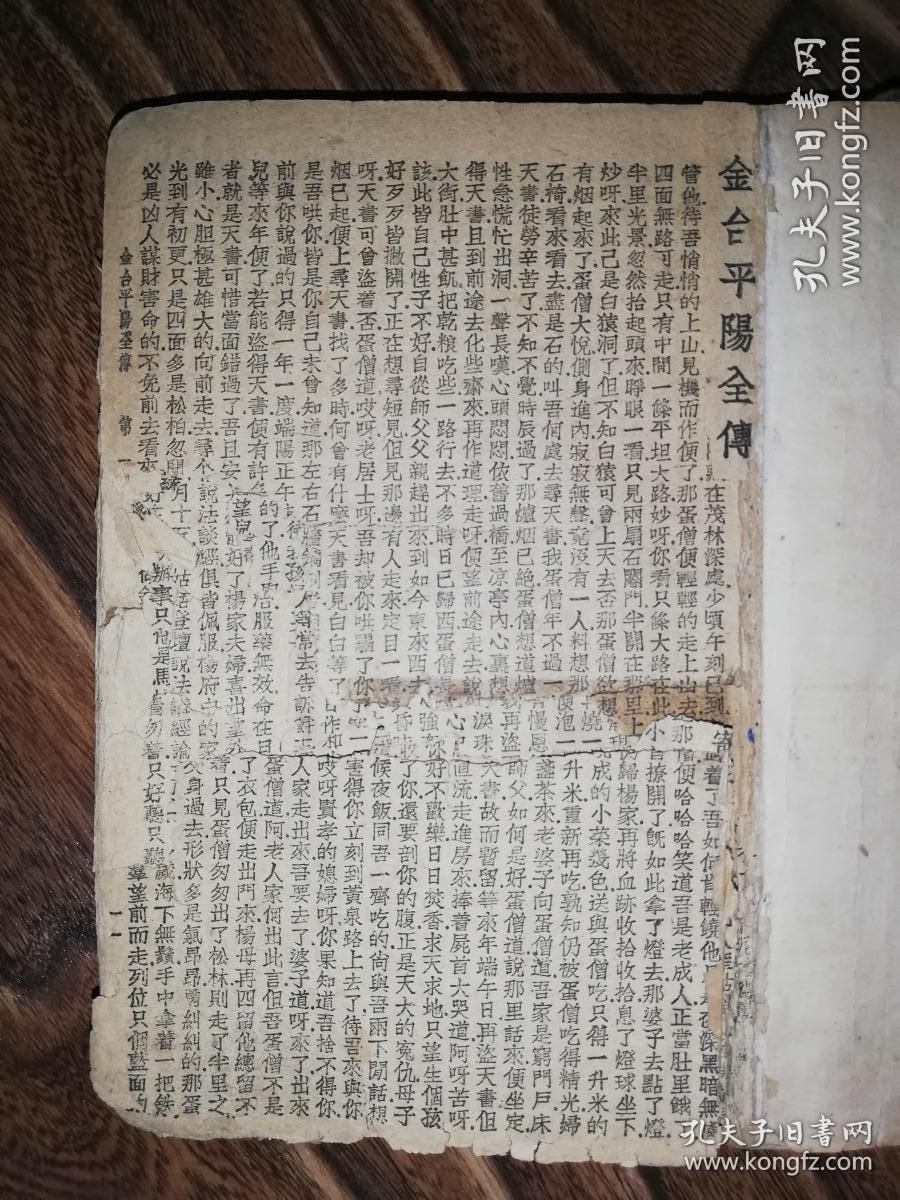 金台平陽全傳
管他待吾悄悄的上山見機而作便了那蛋僧便輕輕的走上山去
在茂林深處少頃午刻已到
四面無路可走只有中間一條平坦大路妙呀你看只條大路在此
半里光景忽然抬起頭來睜眼一看只見兩扇石闥門半開在那里上
炒呀來此已是白猿洞了但不知白猿可曾上天去否那蛋僧欲想
有烟起來了蛋僧大悅側身進內寂寂無聲竟沒有一人料想那
石椅看來看去盡是石的叫吾何處去尋天書我蛋僧年不過一
天書徒勞辛苦了不知不覺時辰過了那爐烟已絶蛋僧想道爐
性急慌忙出洞一聲長嘆心頭悶悶依舊過橋至凉亭內心裏想
得天書且到前途去化些齋來再作道理走呀便望前途走去說
大街肚中甚飢把乾粮吃些一路行去不多時日已歸西蛋僧長
該此皆自己性子不好自從師父父親趕出來到如今東來西去
好歹歹皆撇開了正在想尋短見但見那邊有人走來定目一看
呀天書可曾盜着否蛋僧道哎呀老居士呀吾却被你哄騙了你
烟已起便上尋天書找了多時何曾有什麼天書看見白白等了
是吾哄你皆是你自己未曾知道那左右石
前與你說過的只得一年一度端陽正午
兒等來年便了若能盜得天書便有許
者就是天書可惜當面錯過了吾且安
雖小心胆極甚雄大的向前走去尋个
光到有初更只是四面多是松柏忽聞
必是凶人謀財害命的不免前去看來
金台平陽全傳
第一
一一
盜着了吾如何肯輕饒他
深黑暗無
那厮便哈哈哈笑道吾是老成人正當肚里餓
小自撩開了既如此拿了燈去那婆子去點了燈
歸楊家再將血跡收拾收拾息了燈球坐下
完成的小菜幾色送與蛋僧吃只得一升米的
升米重新再吃熟知仍被蛋僧吃得精光婦
盞茶來老婆子向蛋僧道吾家是窮門戶床
師父如何是好蛋僧道說那里話來便坐定
天書故而暫留等來年端午日再盜天書但
直流走進房來捧着屍首大哭道阿呀苦呀
你好不歡樂日日焚香求天求地只望生個孩
了你還要剖你的腹正是天大的寃仇母子
候夜飯同吾一齊吃的尙與吾兩下閒話想
害得你立刻到黃泉路上去了待吾來與你
哎呀賢孝的媳婦呀你果知道吾捨不得你
人家走出來吾要去了婆子道呀來了出來
蛋僧道阿老人家何出此言但吾蛋僧不是
了衣包便走出門來楊母再四留他總留不
着只見蛋僧匆匆出了松林則走了半里之
身過去形狀多是氣昂昂勇糾糾的那蛋
海下無鬚手中拿着一把鉄
羣望前而走列位只個藍面的
人尋常去告訴
的了他手
服藥無效命在旦
好了楊家夫婦喜出望外
說法談經俱皆佩服楊府中的家
姑姑登壇說法談經論
只他是馬
勿着只好聽只聽
孔夫子旧書网
www.kongfz.com
孔夫子旧書网
www.kongfz.com